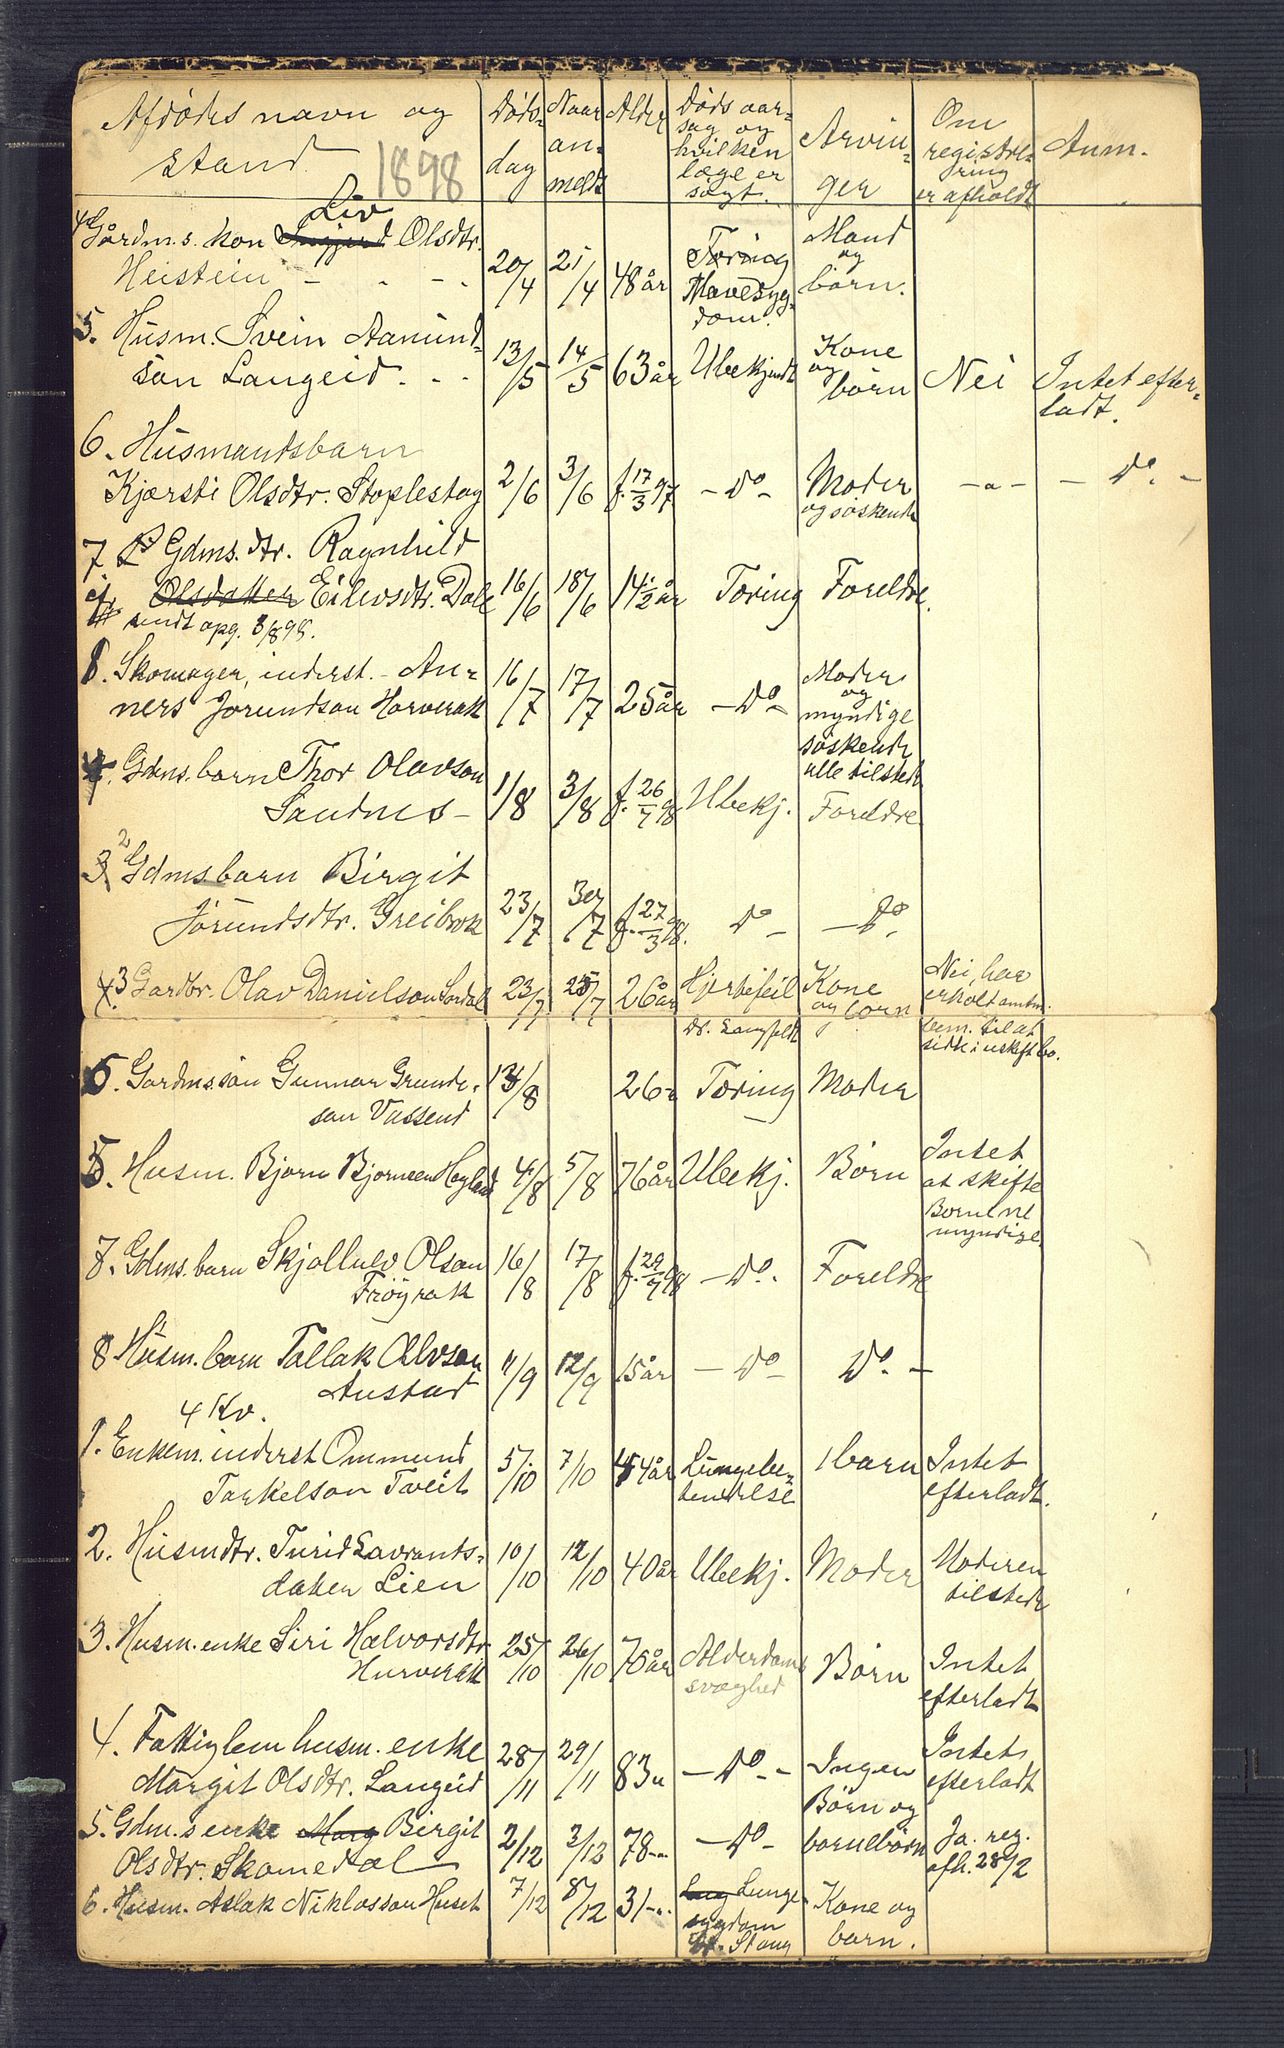 Afdødes navn og stand 1898 Døds-dag Naar an-meldt Alder Døds aar-sag og hvilken læge er søgt. Arvin-ger Om registre-ring er afholdt Anm.
4 Gårdm.s. kon Liv Olsdtr.
Heistein - - - 20/4 21/4 48 år Tæring Mavesyg-dom. Mand og børn.
5. Husm. Svein Aamund-
sön Langeid. - - 13/5 14/5 63 år Ubekjendt Kone og børn Nei Intet efter-ladt.
6. Husmandsbarn
Kjærsti Olsdtr. Stoplestog 2/6 3/6 f. 17/3 97 - Do - Moder og søskende - " - - Do. -
7 Gdms. dtr. Ragnhild
Olsdatter Eilevsdtr. Dale 16/6 18/6 14 1/2 år Tæring Foreldre.
sendt opg. 3/8 98.
1. Skomager, inderst. - An-
ners Jorundson Harverak 16/7 17/7 25 år - Do - Moder og myndige søskende alle tilstede
Gdms. barn Thor Olavson
Sandnes - 1/8 3/8 f. 26/7 98 Ubekj. Foreldre
2 Gdms barn Birgit
Jörundsdtr. Greibrok 23/7 30/7 f. 27/3 98. Do - - Do.
3 Gardbr. Olav Danielson Sordal 23/7 25/7 26 år Hjertefeil Dr. Langfeldt Kone og born Nei, har erholt amtm. til at sidde i uskift bo.
5. Gardms.sön Gunnar Grunde-
son Vassend 13/8 26 " Tæring Moder
5. Husm. Bjorn Bjornsen Hegland 4/8 5/8 76 år Ubekj. Børn Intet at skifte Bornene myndige.
7. Gdms. barn Skjollulv Olson
Fröyrak 16/8 17/8 f. 29/7 98 - Do. - Foreldre
8 Husm. barn Tallak Olvson
Austad 11/9 12/9 15 år - Do - Do. -
4 Kv.
1. Enkem. inderst Ommund
Tarkelson Tveit 5/10 7/10 44 år Lungebe-tendelse 1 barn Intet efterladt.
2. Husmdtr. Turid Lavrants-
datter Lien 10/10 12/10 40 år Ubekj. Moder Moderen tilstede
3. Husm. enke Siri Halvorsdtr
Hurverak 25/10 26/10 75 år Alderdoms svaghed Børn Intet efterladt
4. Fattiglem husm. enke
Margit Olsdtr. Langeid 28/11 29/11 83 " - Do - - Ingen Intet efterladt
5. Gdm.s enke Marg Birgit
Olsdtr. Skomedal 2/12 3/12 78 - " - Do - Børn og bornebörn Ja. reg. afh. 28/2
6. Husm. Aslak Niklosson Huset 7/12 8/12 31 - " Lung Lunge-sygdom Dr. Stang Kone og barn.